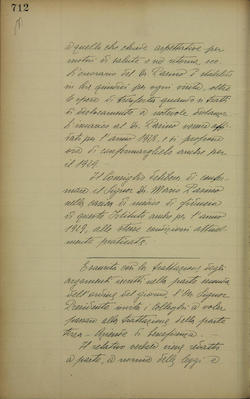 712
(1)
o quello che chiede aspettativa per
motivi di salute e suo ritorno, ecc.
L'onorario del Dr. Parino è stabilito
in lire quindici per ogni visita, oltre
le spese di trasferta quando si tratti
di dislocamento a notevole distanza.
L'incarico al Dr. Parino venne affi-
dato per l'anno 1928 e si propone
ora di confermarglielo anche per
il 1929.
Il Consiglio delibera di confer-
mare il Signor Dr. Mario Parino
alla carica di medico di fiducia
di questo Istituto anche per l'anno
1929, alle stesse condizioni attual-
mente praticate.
Esaurita così la trattazione degli
argomenti iscritti nella parte seconda
dell'ordine del giorno, l'Ill. Signor
Presidente invita i colleghi a voler
passare alla trattazione della parte
terza
Il relativo verbale viene redatto
a parte, a norma della legge e